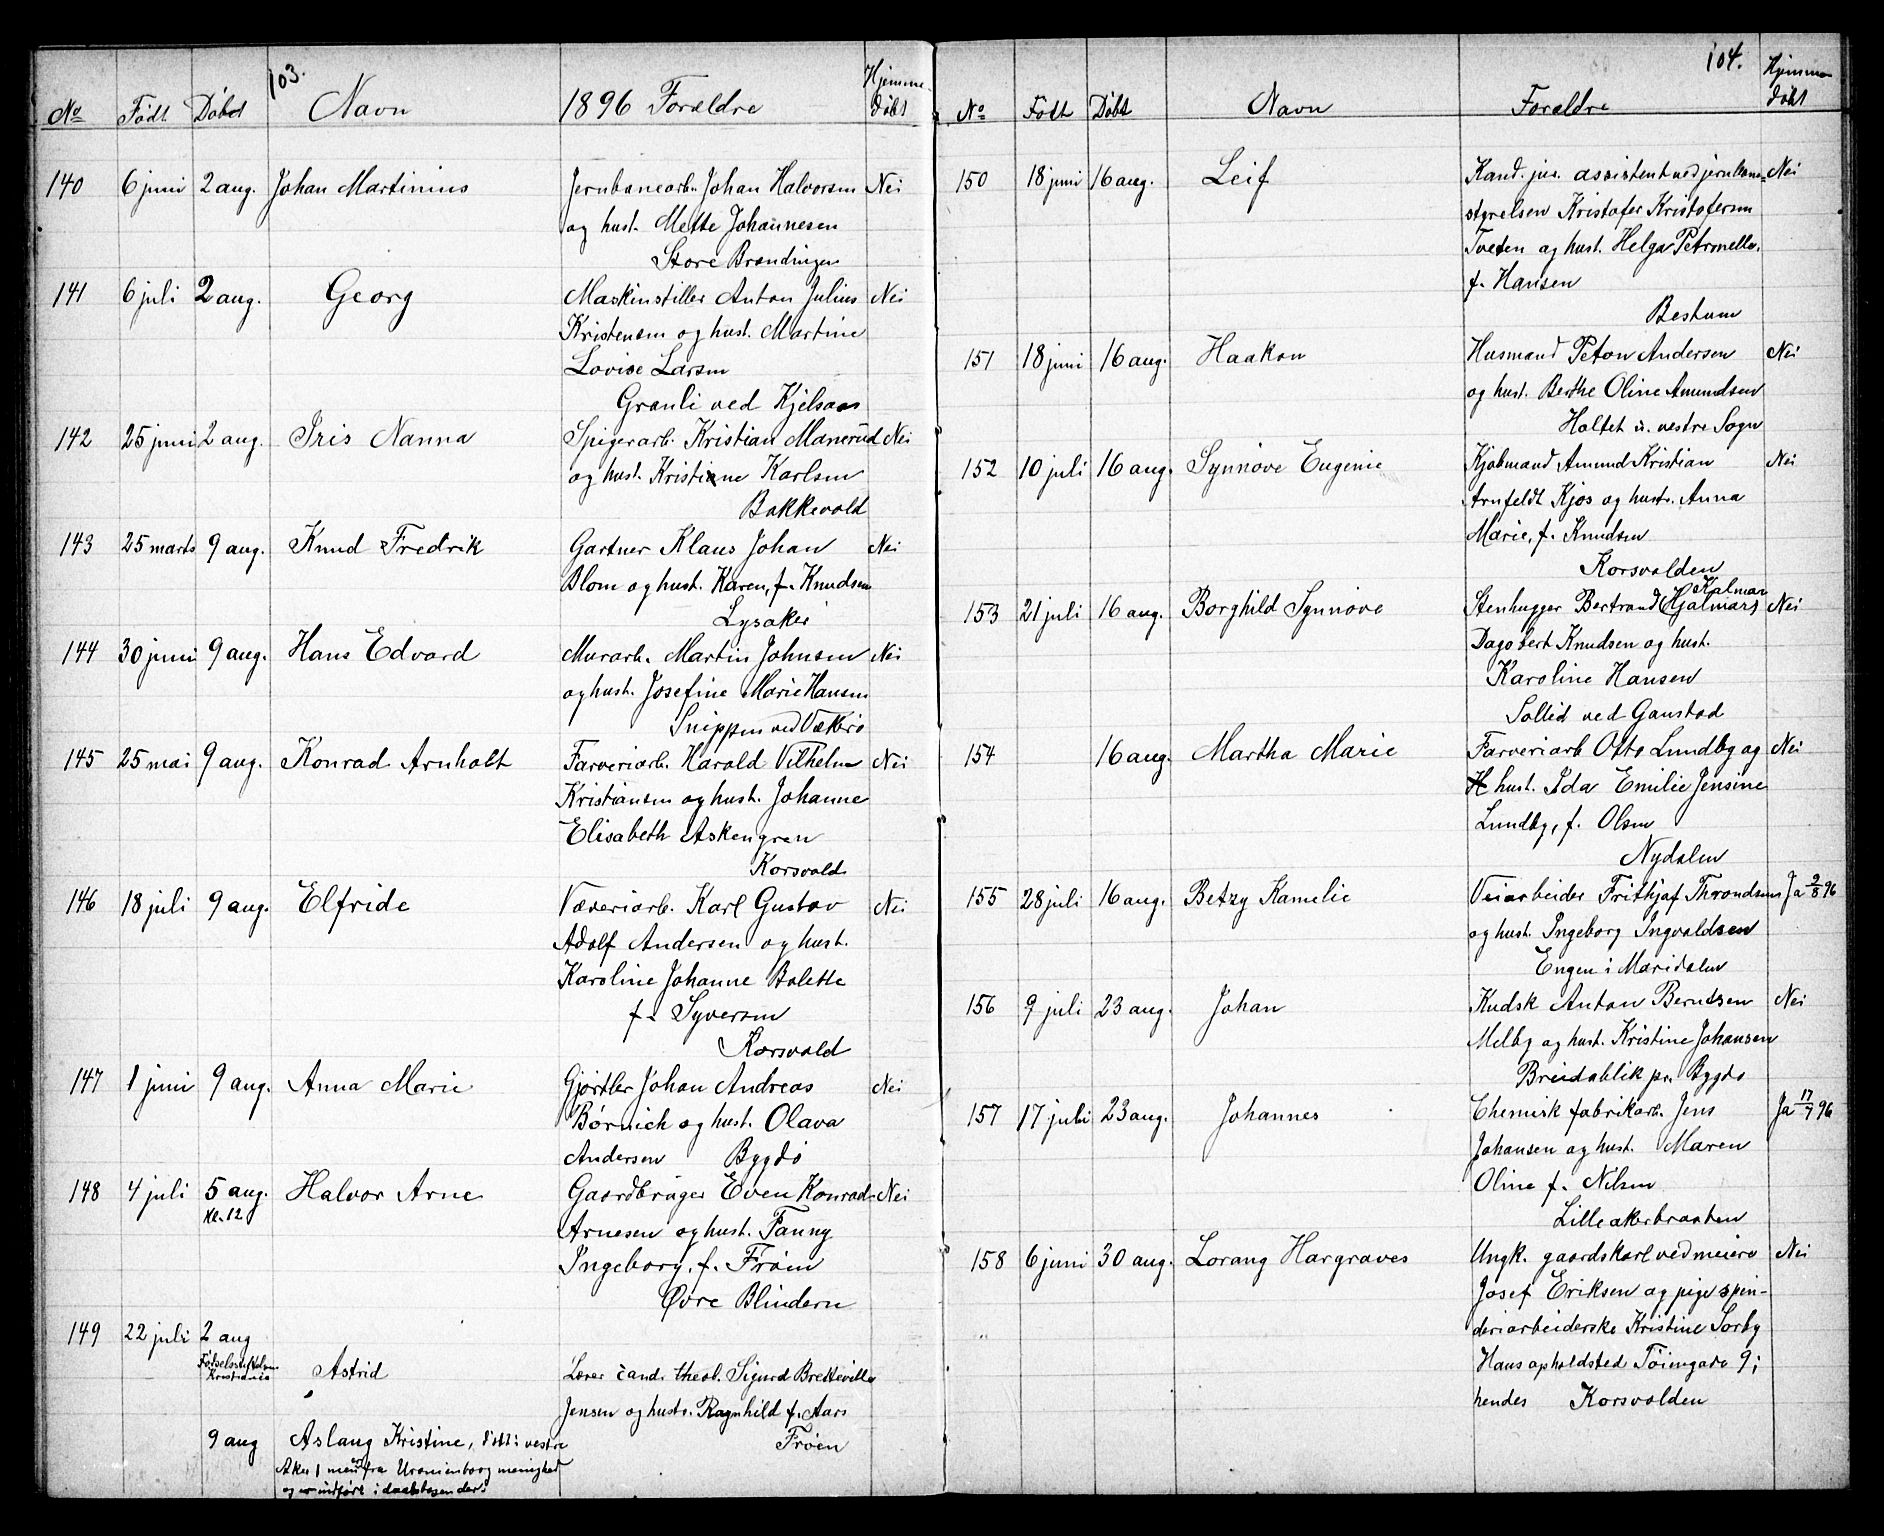 103.
No Født Døbt Navn 1896 Forældre Hjemme-
døbt
140 6 juni 2 aug. Johan Martinius Jernbanearb. Johan Halvorsen Nei
og hust. Mette Johannesen
Store Brændingen
141 6 juli 2 aug. Georg Maskinstiller Anton Julius Nei
Kristensen og hust. Martine
Lovise Larsen
Granli ved Kjelsaas
142 25 juni 2 aug. Iris Nanna Spigerarb. Kristian Manerud Nei
og hust. Kristine Karlsen
Bakkevold
143 25 marts 9 aug. Knud Fredrik Gartner Klaus Johan Nei
Blom og hust. Karen, f. Knudsen
Lysaker
144 30 juni 9 aug. Hans Edvard Murarb. Martin Johnsen Nei
og hust. Josefine Marie Hansen
Snippen ved Vækerø
145 25 mai 9 aug. Konrad Arnholt Farveriarb. Harald Vilhelm Nei
Kristiansen og hust. Johanne
Elisabeth Askengren
Korsvold
146 18 juli 9 aug. Elfride Væveriarb. Karl Gustav Nei
Adolf Andersen og hust.
Karoline Johanne Bolette
f. Syversen
Korsvold
147 1 juni 9 aug. Anna Marie Gjørtler Johan Andreas Nei
Børnich og hust. Olava
Andersen Bygdø
148 4 juli 5 aug. Halvor Arne Gaardbruger Even Konrad Nei
kl. 12
Arnesen og hust. Fanny
Ingeborg, f. Frøen
Øvre Blindern
149 22 juli 2 aug
Fødselsstiftelsen
Kristiania
Astrid Lærer cand. theol. Sigurd Bretteville
Jensen og hustr. Ragnhild f. Aars
Frøen
9 aug Aslaug Kristine, døbt i vestre
Aker, men er fra Uranienborg menighed
og er indført i daabsbogen der.
104.
No Født Døbt Navn Forældre Hjemme
døbt
150 18 juni 16 aug. Leif Kand. jur. assistent ved jernbane- Nei
styrelsen Kristofer Kristofersen
Tveten og hust. Helga Petronella,
f. Hansen
Bestum
151 18 juni 16 aug. Haakon Husmand Peton Andersen Nei
og hust. Berthe Oline Amundsen
Holtet u. vestre Sogn
152 10 juli 16 aug. Synnøve Eugenie Kjøbmand Amund Kristian Nei
Arnfeldt Kjos og hustr. Anna
Marie, f. Knudsen
Korsvolden
Kalmar
153 21 juli 16 aug. Borghild Synnøve Stenhugger Bertrand (Hjalmar) Nei
Dagobert Knudsen og hust.
Karoline Hansen
Sollid ved Gaustad
154 16 aug. Martha Marie Farveriarb Otto Lundby og Nei
hust. Ida Emilie Jensine
Lundby, f. Olsen
Nydalen
155 28 juli 16 aug. Betzy Kamelie Veiarbeider Frithjof Throndsen Ja 2/8 96
og hust. Ingeborg Ingvaldsen
Engen i Maridalen
156 9 juli 23 aug. Johan Kudsk Anton Berntsen Nei
Melby og hust. Kristine Johansen
Breidablik pr. Bygdø
157 17 juli 23 aug. Johannes Chemisk fabrikarb. Jens Ja 17/7 96
Johansen og hust. Maren
Oline f. Nilsen
Lilleakerbraaten
158 6 juni 30 aug. Lorang Hargraves Ungk. gaardskarl ved meieri Nei
Josef Eriksen og pige spin-
deriarbeiderske Kristine Sørby
Hans opholdsted Tøiengade 9;
hendes Korsvolden